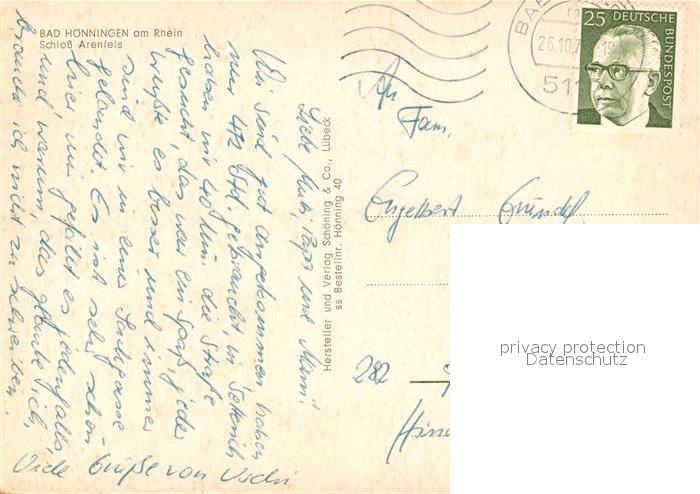 BAD HÖNNINGEN am Rhein
Schloß Arenfels
Liebe Mutti, Papa und Mami!
Wir sind gut angekommen haben
nur 4 1/2 Std. gebraucht, in
haben wir 40 Min. die Straße
gesucht, das war ein Spaß, jeder
wußte es besser und immer
sind wir in einer Sackgasse
gelandet. Es ist sehr schön
hier, mir gefällt es jedenfalls,
und warum, das glaube ich,
brauche ich nicht zu schreiben.
Viele Grüße von Uschi
Hersteller und Verlag Schöning & Co., Lübeck
ss Bestellnr. Hönning 40
25 DEUTSCHE
BUNDESPOST
BAD
26.10.7
An
Fam.
Engelbert Gründel
282
privacy protection
Datenschutz